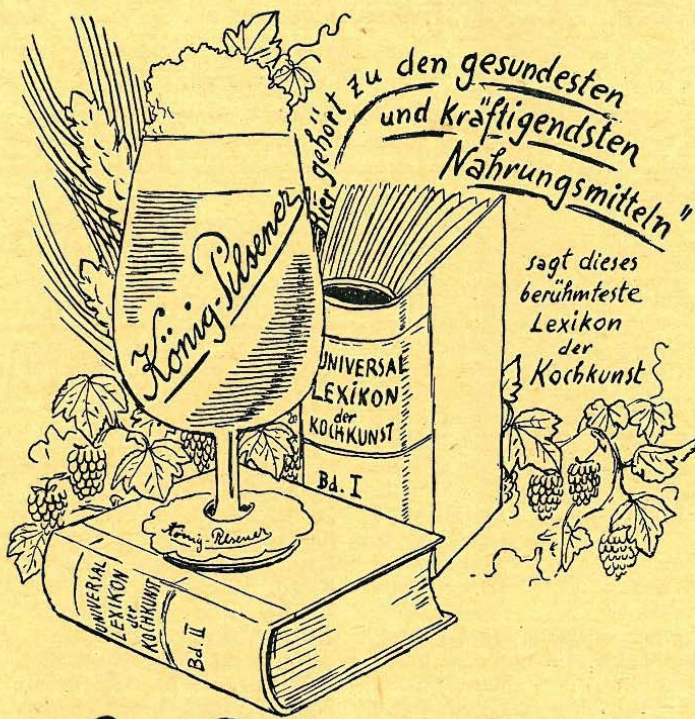 Bier gehört zu den gesundesten
und kräftigendsten
Nahrungsmitteln"
sagt dieses
berühmteste
Lexikon
der
Kochkunst
König-Pilsener
UNIVERSAL
LEXIKON
der
KOCHKUNST
Bd. I
König-Pilsener
UNIVERSAL
LEXIKON
der
KOCHKUNST
Bd. II